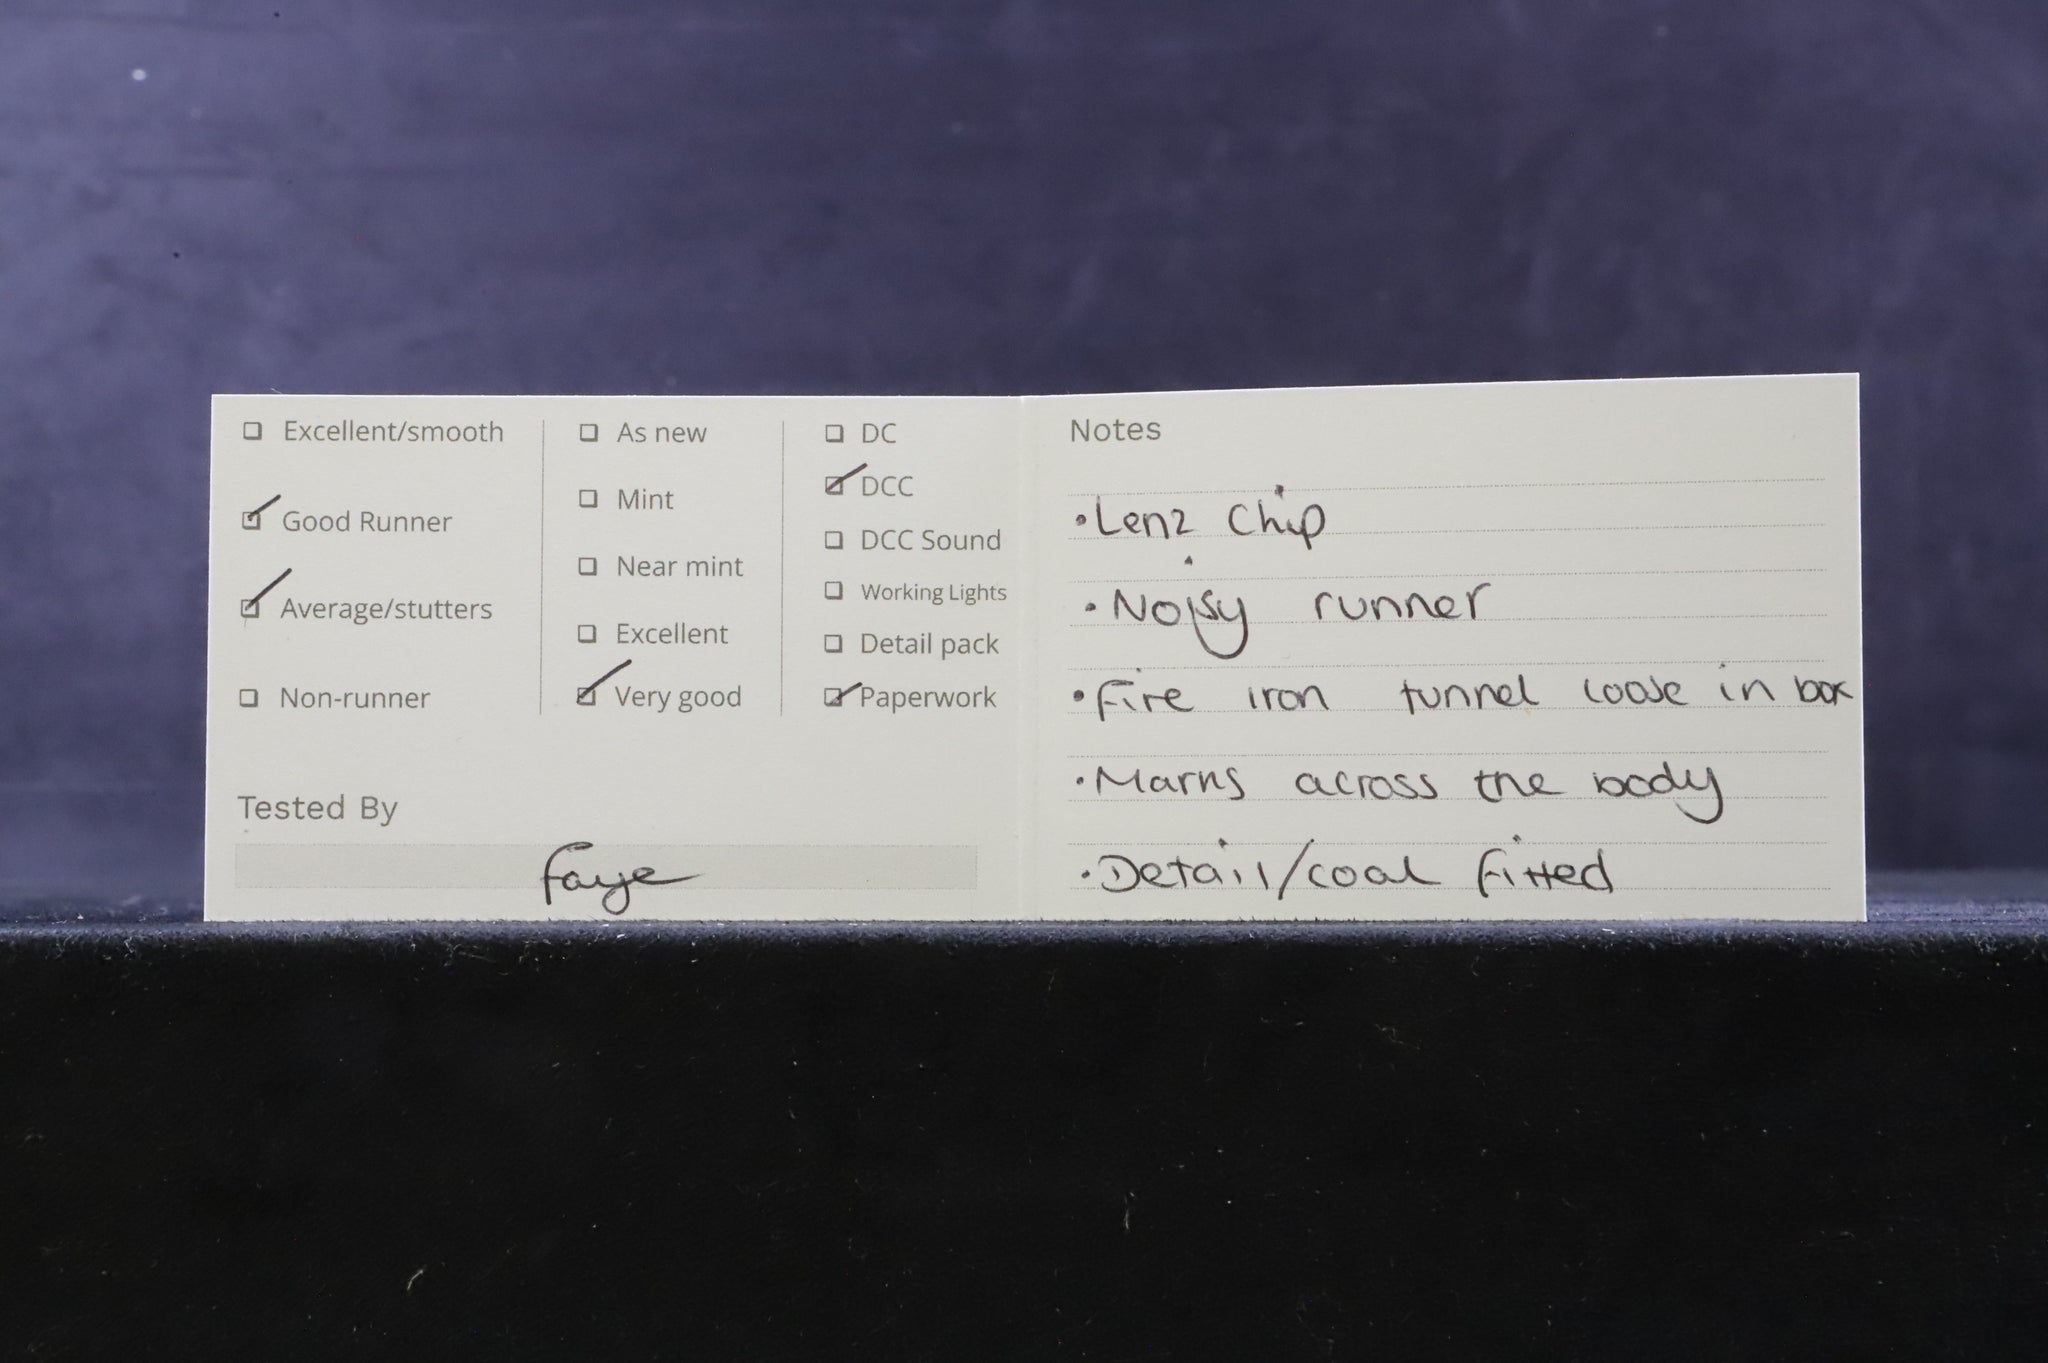 Excellent/smooth
Good Runner
Average/stutters
Non-runner
As new
Mint
Near mint
Excellent
Very good
DC
DCC
DCC Sound
Working Lights
Detail pack
Paperwork
Tested By
Faye
Notes
•Lenz Chip
•Noisy runner
•Fire iron tunnel loose in box
•Marks across the body
•Detail/coal fitted